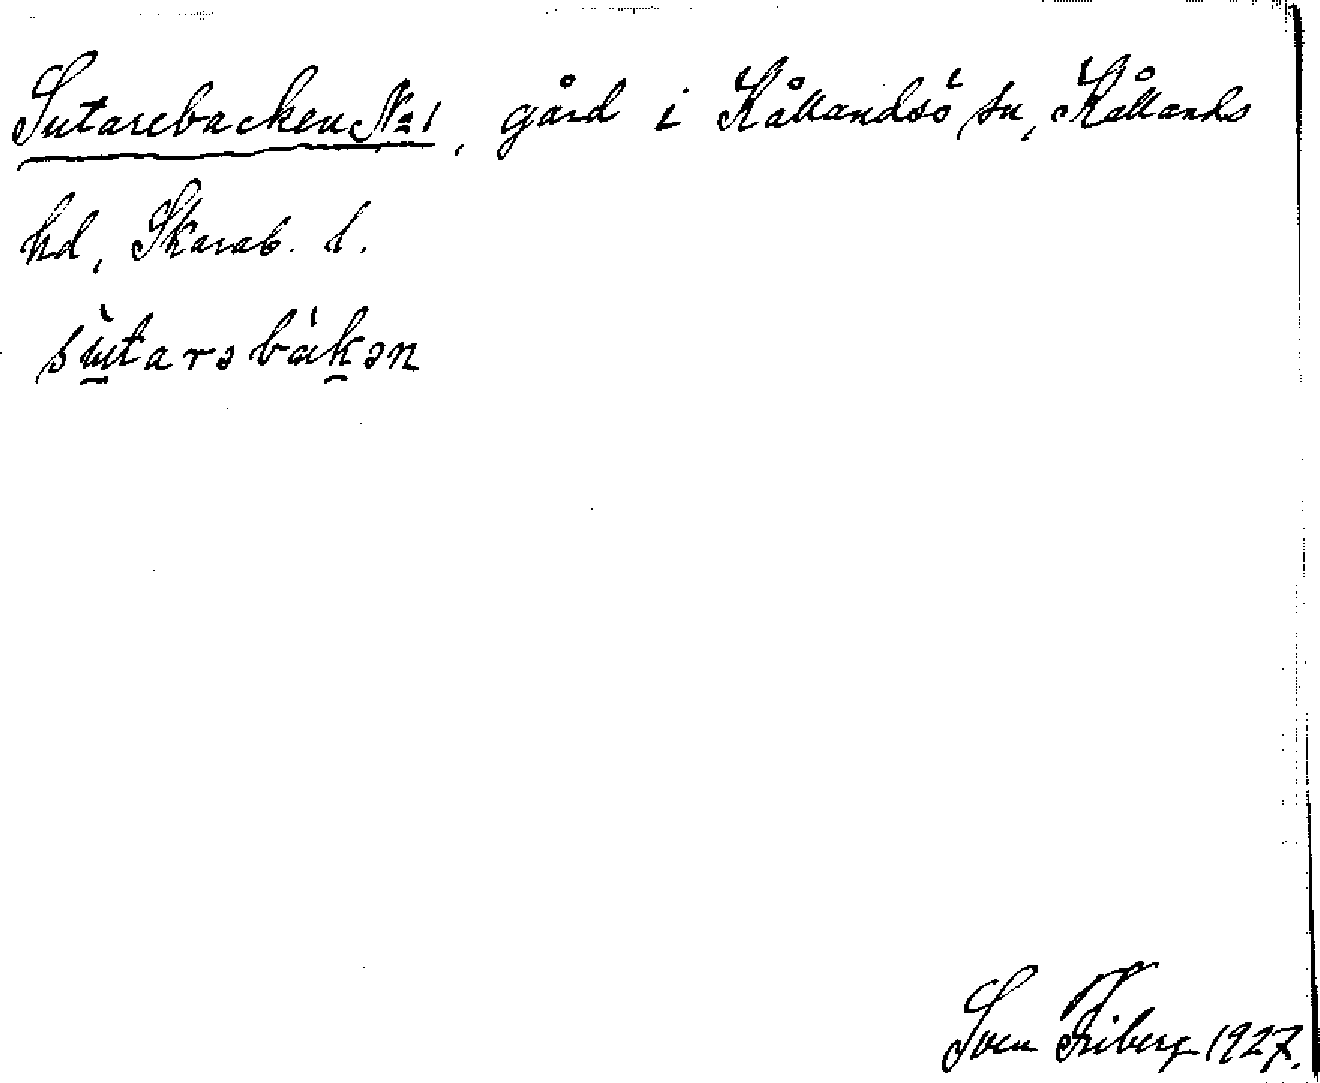 Sutarebacken No 1, gård i Kållandsö sn, Kållands
hd, Skarab. l.
sùtarəbàkən
Sven Friberg 1927.